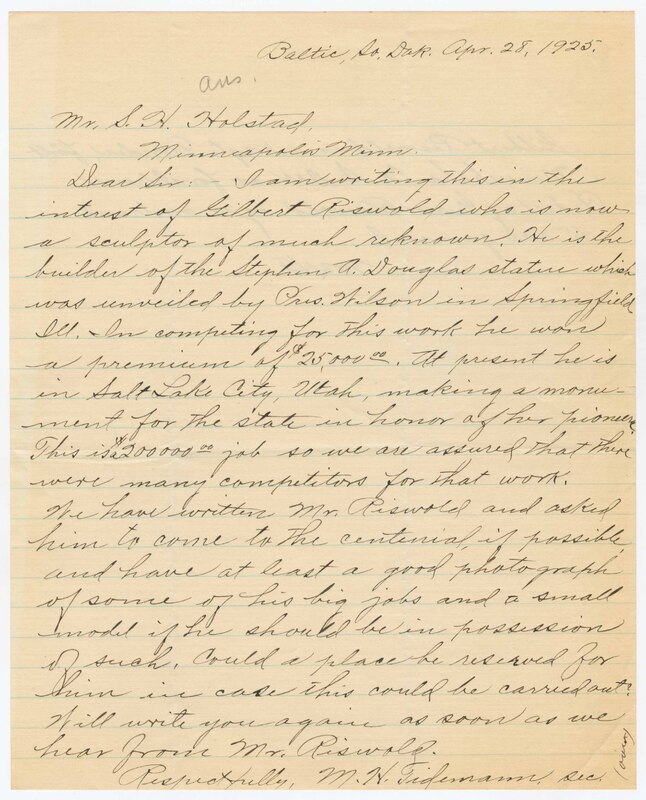 Baltic, So. Dak. Apr. 28, 1925.
ans.
Mr. S. H. Holstad,
Minneapolis Minn.
Dear Sir:- I am writing this in the
interest of Gilbert Riswold who is now
a sculptor of much reknown. He is the
builder of the Stephen A. Douglas statue which
was unveiled by Pres. Wilson in Springfield
Ill. In competing for this work he won
a premium of $25000 00. At present he is
in Salt Lake City, Utah, making a monu-
ment for the state in honor of her pioneers.
This is a $200000 00 job so we are assured that there
were many competitors for that work.
We have written Mr. Riswold and asked
him to come to the centenial, if possible,
and have at least a good photograph
of some of his big jobs and a small
model if he should be in possession
of such. Could a place be reserved for
him in case this could be carried out?
Will write you again as soon as we
hear from Mr. Riswold.
Respectfully, M. H. Tidemann, sec.
(over)